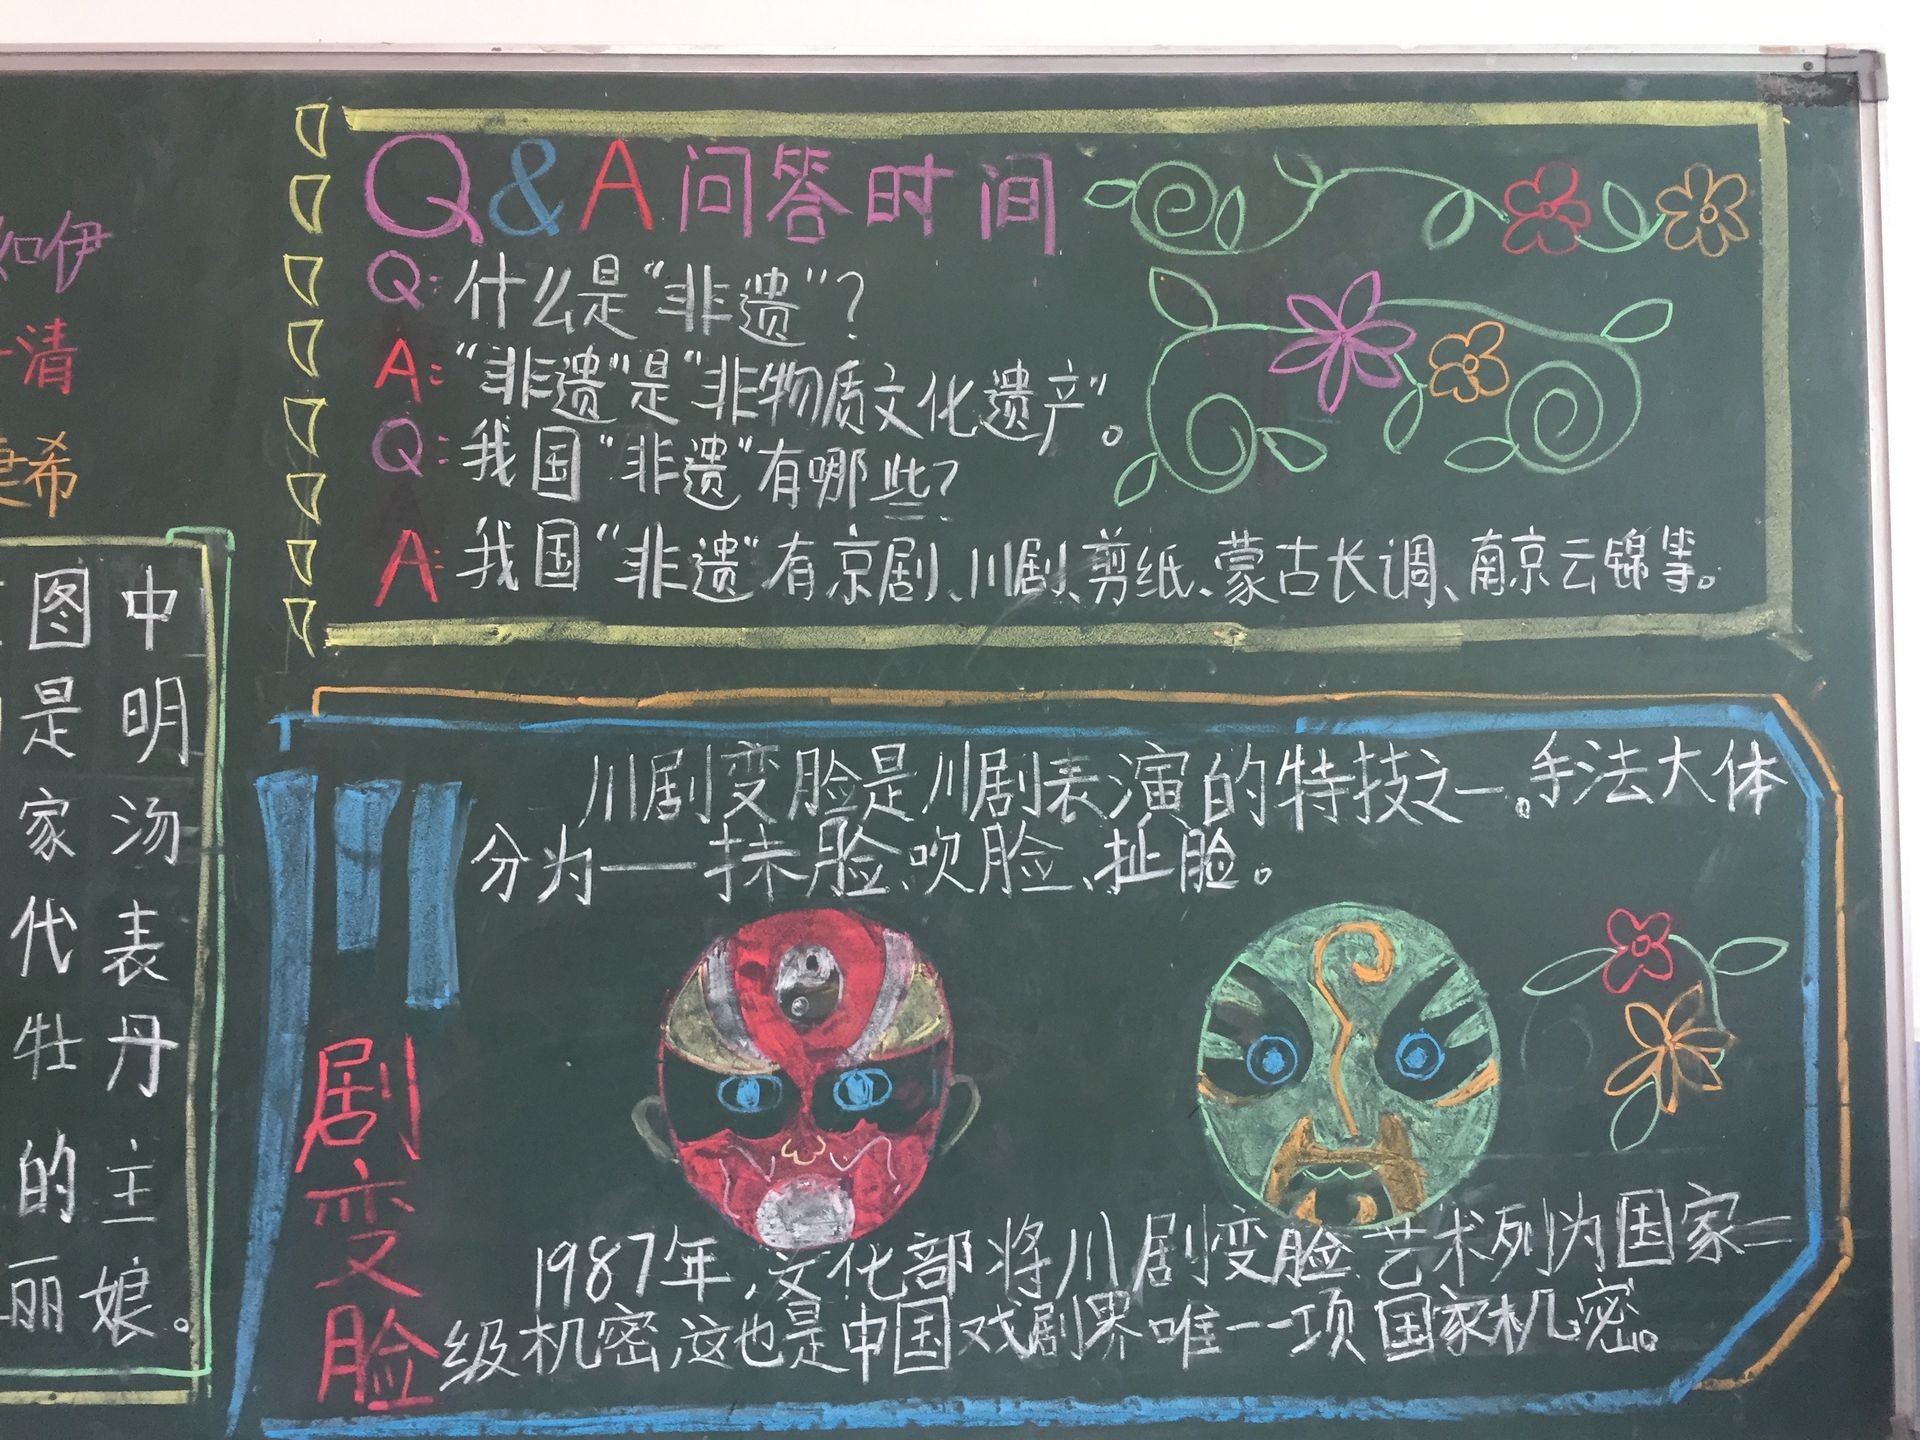 Q&A问答时间
Q:什么是“非遗”?
A:“非遗”是“非物质文化遗产”。
Q:我国“非遗”有哪些?
A:我国“非遗”有京剧、川剧、剪纸、蒙古长调、南京云锦等。
川剧变脸
川剧变脸是川剧表演的特技之一。手法大体
分为——抹脸、吹脸、扯脸。
1987年,文化部将川剧变脸艺术列为国家二
级机密,这也是中国戏剧界唯一一项国家机密。
如伊
清
希
中明汤表丹主娘。
图是家代牡的丽